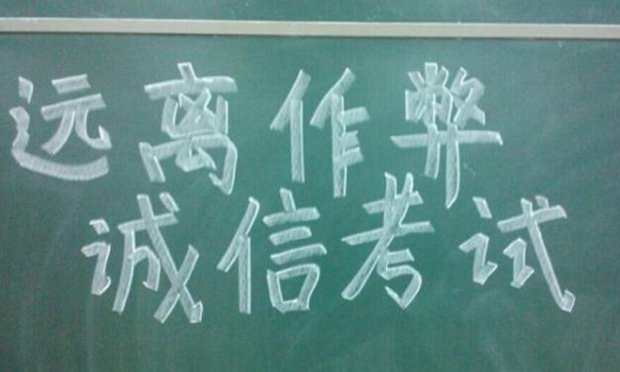 远离作弊
诚信考试